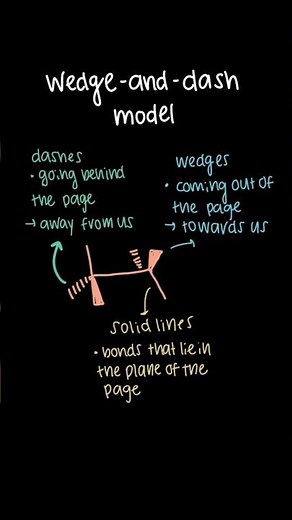 Wedge-and-dash
model
dashes
• going behind
the page
→ away from us
wedges
• coming out of
the page
→ towards us
solid lines
• bonds that lie in
the plane of the
page